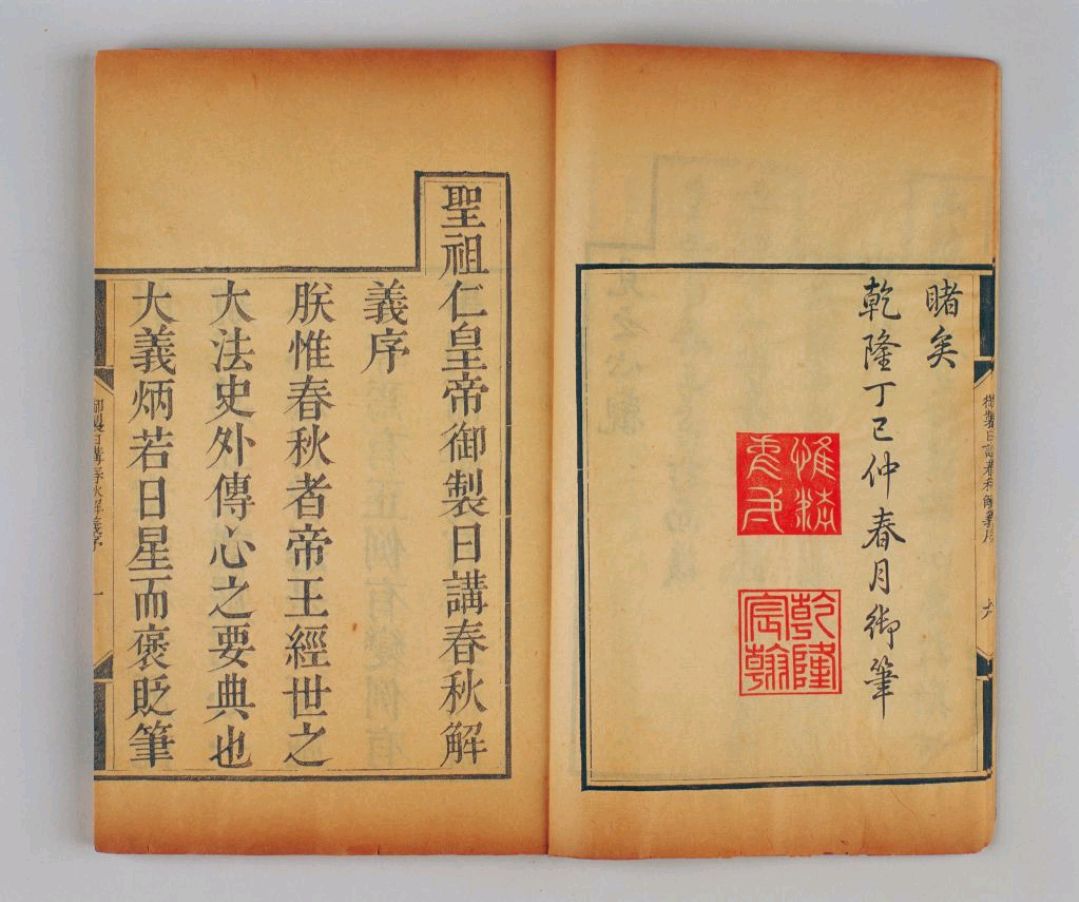 睹矣
乾隆丁巳仲春月御筆
惟精惟一
乾隆宸翰
聖祖仁皇帝御製日講春秋解
義序
朕惟春秋者帝王經世之
大法史外傳心之要典也
大義炳若日星而褒貶筆
御製日講春秋解義序
一